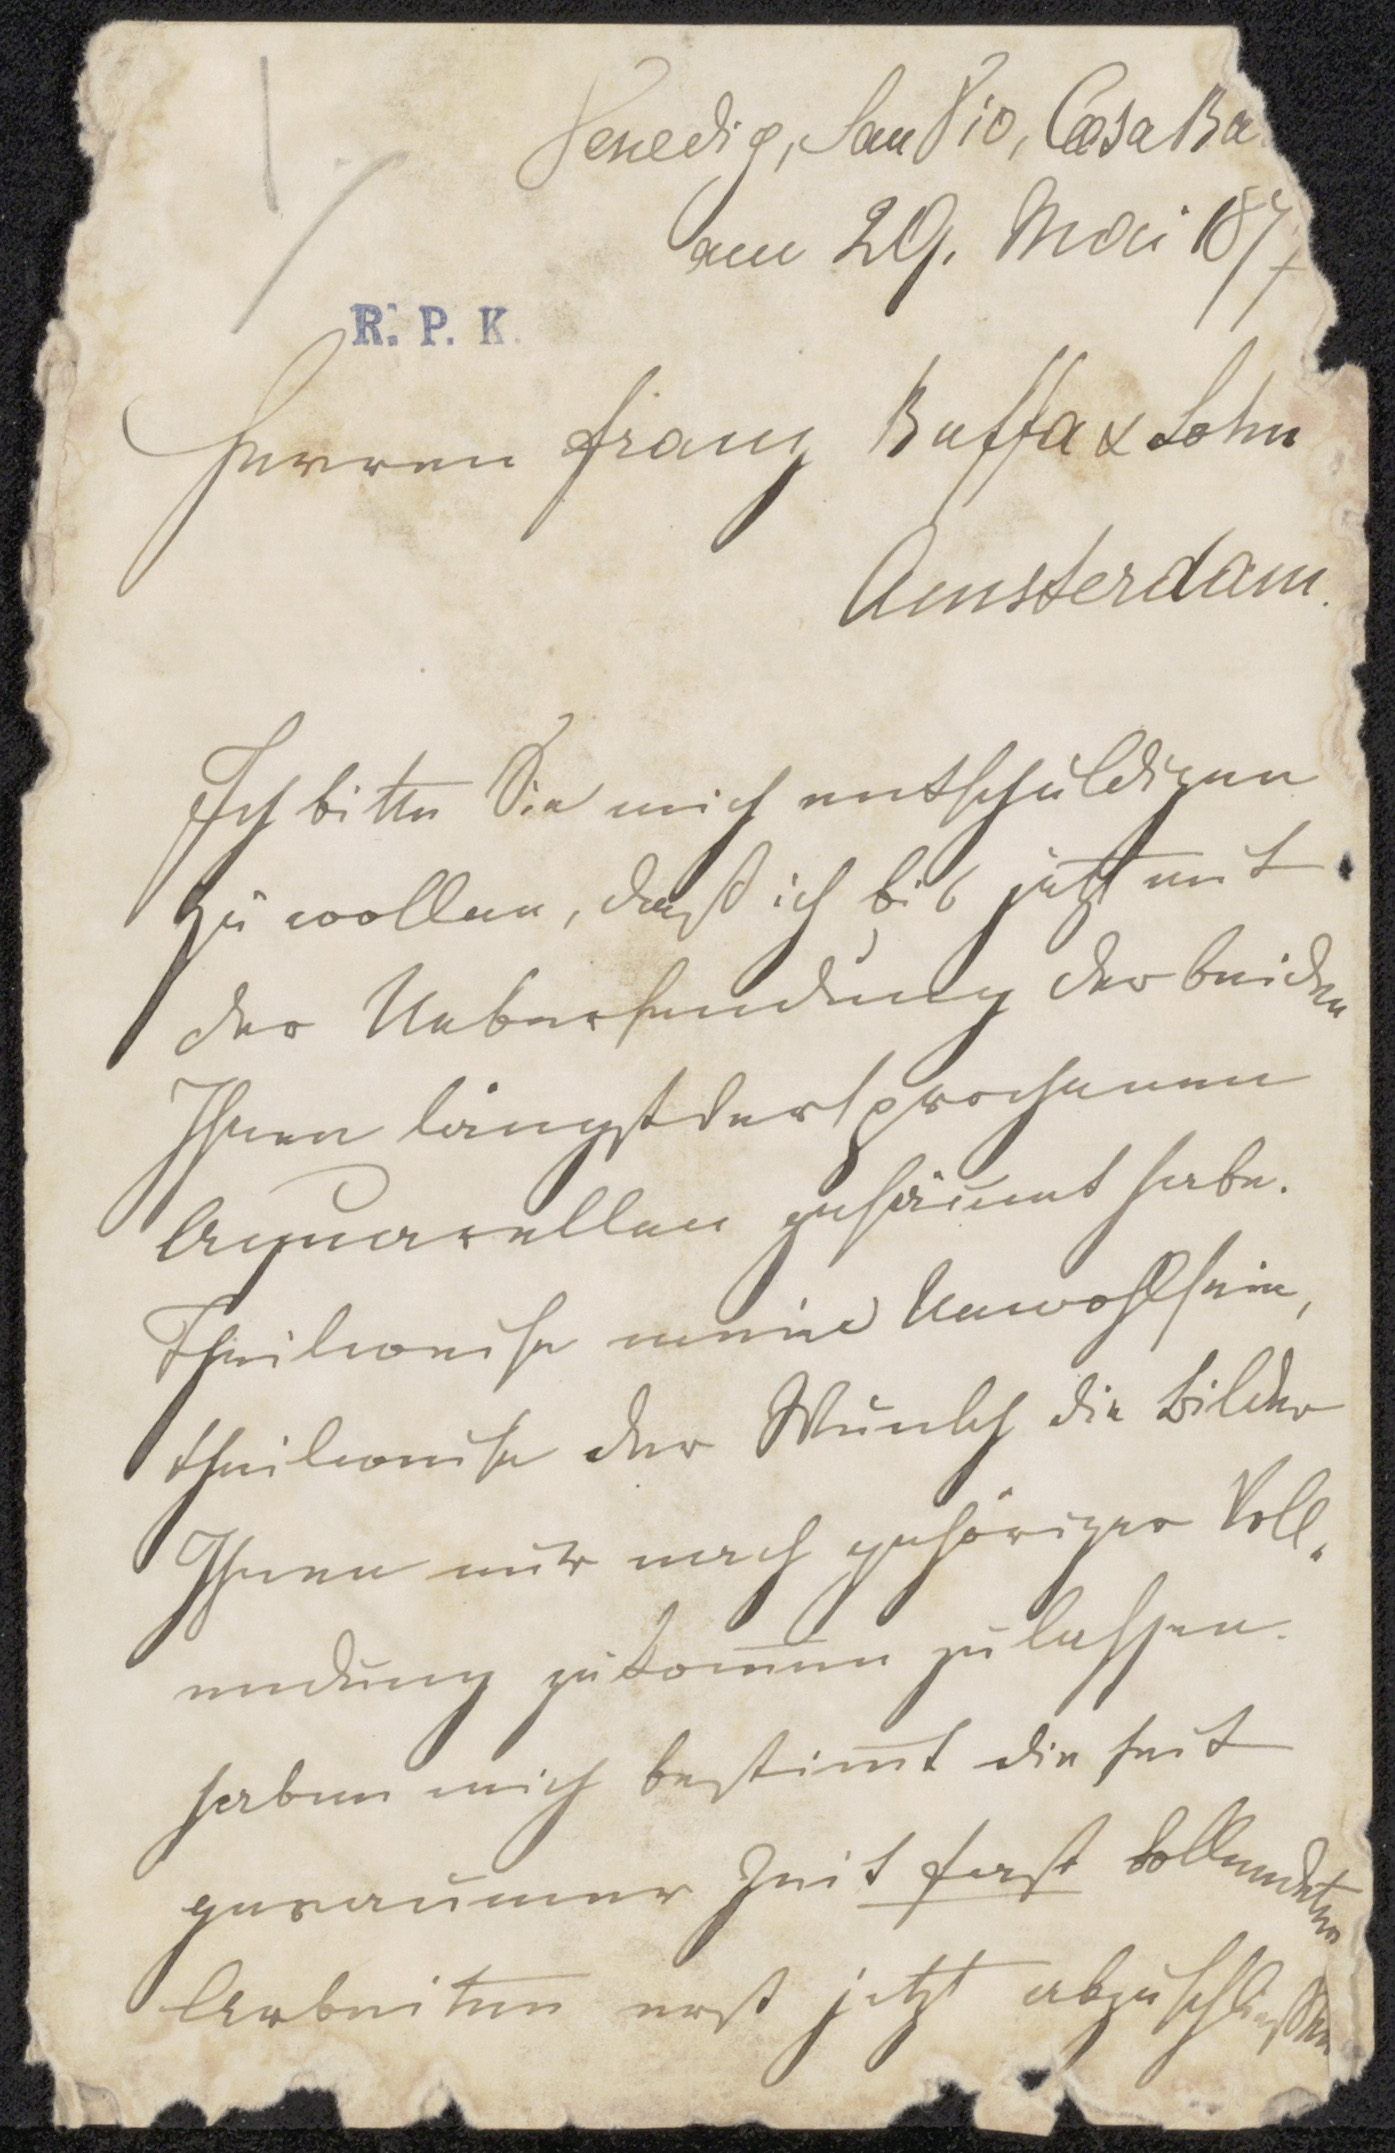 Venedig, San Vio, Casa Ba
am 29. Mai 187
R. P. K.
Herren Franz Buffa & Sohn
Amsterdam.
Ich bitte Sie mich entschuldigen
zu wollen, daß ich bis jetzt mit
der Uebersendung der beiden
Ihnen längst versprochenen
Aquarellen gesäumt habe.
Theilweise meine Unwohlsein,
theilweise der Wunsch die Bilder
Ihnen nur nach gehöriger Voll-
endung zukom̄en zu lassen.
haben mich bestim̄t die seit
geraumer Zeit fast vollendeten
Arbeiten erst jetzt abzuschließen